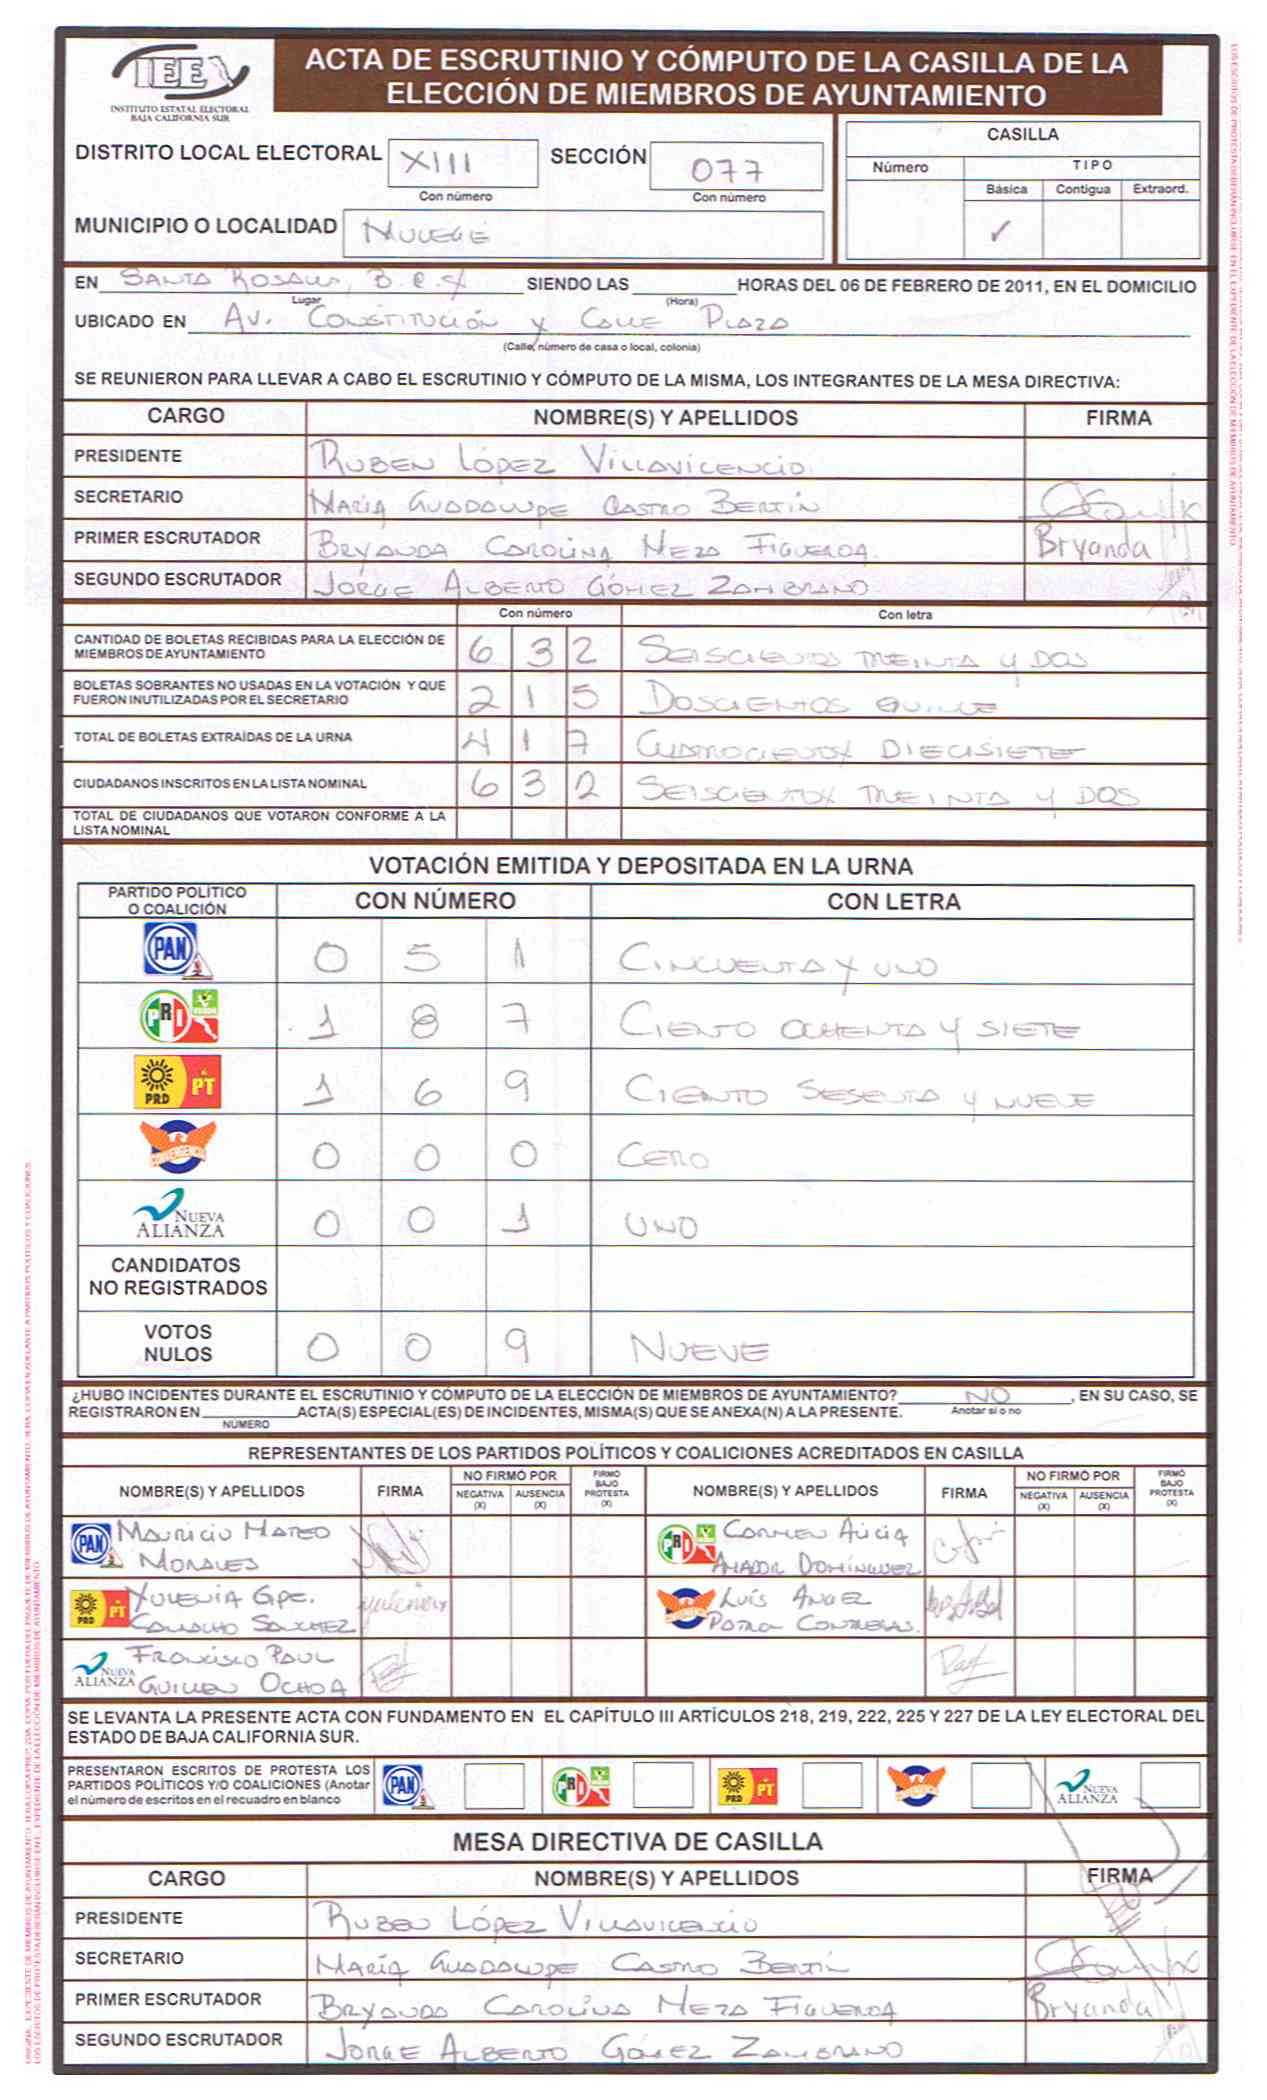 IEE
INSTITUTO ESTATAL ELECTORAL
BAJA CALIFORNIA SUR
ACTA DE ESCRUTINIO Y CÓMPUTO DE LA CASILLA DE LA
ELECCIÓN DE MIEMBROS DE AYUNTAMIENTO
DISTRITO LOCAL ELECTORAL XIII SECCIÓN 077
Con número Con número
MUNICIPIO O LOCALIDAD MULEGÉ
CASILLA
Número TIPO
Básica Contigua Extraord.
✓
EN SANTA ROSALIA, B.C.S SIENDO LAS HORAS DEL 06 DE FEBRERO DE 2011, EN EL DOMICILIO
Lugar (Hora)
UBICADO EN AV. CONSTITUCIÓN Y CALLE PLAZA
(Calle, número de casa o local, colonia)
SE REUNIERON PARA LLEVAR A CABO EL ESCRUTINIO Y CÓMPUTO DE LA MISMA, LOS INTEGRANTES DE LA MESA DIRECTIVA:
CARGO NOMBRE(S) Y APELLIDOS FIRMA
PRESIDENTE RUBEN LÓPEZ VILLAVICENCIO
SECRETARIO MARÍA GUADALUPE CASTRO BERTÍN
PRIMER ESCRUTADOR BRYANDA CAROLINA MEZA FIGUEROA. Bryanda
SEGUNDO ESCRUTADOR JORGE ALBERTO GÓMEZ ZAMBRANO
Con número Con letra
CANTIDAD DE BOLETAS RECIBIDAS PARA LA ELECCIÓN DE
MIEMBROS DE AYUNTAMIENTO 6 3 2 SEISCIENTOS TREINTA Y DOS
BOLETAS SOBRANTES NO USADAS EN LA VOTACIÓN Y QUE
FUERON INUTILIZADAS POR EL SECRETARIO 2 1 5 DOSCIENTOS QUINCE
TOTAL DE BOLETAS EXTRAÍDAS DE LA URNA 4 1 7 CUATROCIENTOS DIECISIETE
CIUDADANOS INSCRITOS EN LA LISTA NOMINAL 6 3 2 SEISCIENTOS TREINTA Y DOS
TOTAL DE CIUDADANOS QUE VOTARON CONFORME A LA
LISTA NOMINAL
VOTACIÓN EMITIDA Y DEPOSITADA EN LA URNA
PARTIDO POLÍTICO
O COALICIÓN CON NÚMERO CON LETRA
PAN 0 5 1 CINCUENTA Y UNO
PRI VERDE 1 8 7 CIENTO OCHENTA Y SIETE
PRD PT 1 6 9 CIENTO SESENTA Y NUEVE
CONVERGENCIA 0 0 0 CERO
NUEVA ALIANZA 0 0 1 UNO
CANDIDATOS
NO REGISTRADOS
VOTOS
NULOS 0 0 9 NUEVE
¿HUBO INCIDENTES DURANTE EL ESCRUTINIO Y CÓMPUTO DE LA ELECCIÓN DE MIEMBROS DE AYUNTAMIENTO? NO , EN SU CASO, SE
REGISTRARON EN ACTA(S) ESPECIAL(ES) DE INCIDENTES, MISMA(S) QUE SE ANEXA(N) A LA PRESENTE. Anotar sí o no
NÚMERO
REPRESENTANTES DE LOS PARTIDOS POLÍTICOS Y COALICIONES ACREDITADOS EN CASILLA
NOMBRE(S) Y APELLIDOS FIRMA NO FIRMÓ POR NEGATIVA (X) AUSENCIA (X) FIRMÓ BAJO PROTESTA (X) NOMBRE(S) Y APELLIDOS FIRMA NO FIRMÓ POR NEGATIVA (X) AUSENCIA (X) FIRMÓ BAJO PROTESTA (X)
PAN MAURICIO MATEO
MORALES
PRI CARMEN ALICIA
AMADOR DOMÍNGUEZ
PRD PT YULENIA GPE.
CAMACHO SANCHEZ
LUÍS ANGEL
CONTRERAS.
NUEVA ALIANZA FRANCISCO PAUL
GUILLEN OCHOA
SE LEVANTA LA PRESENTE ACTA CON FUNDAMENTO EN EL CAPÍTULO III ARTÍCULOS 218, 219, 222, 225 Y 227 DE LA LEY ELECTORAL DEL
ESTADO DE BAJA CALIFORNIA SUR.
PRESENTARON ESCRITOS DE PROTESTA LOS
PARTIDOS POLÍTICOS Y/O COALICIONES (Anotar
el número de escritos en el recuadro en blanco
PAN PRI PRD PT CONVERGENCIA NUEVA ALIANZA
MESA DIRECTIVA DE CASILLA
CARGO NOMBRE(S) Y APELLIDOS FIRMA
PRESIDENTE RUBEN LÓPEZ VILLAVICENCIO
SECRETARIO MARÍA GUADALUPE CASTRO BERTÍN
PRIMER ESCRUTADOR BRYANDA CAROLINA MEZA FIGUEROA Bryanda
SEGUNDO ESCRUTADOR JORGE ALBERTO GÓMEZ ZAMBRANO